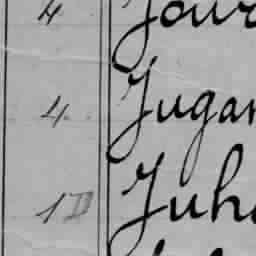 4 Jour
4. Jugan
1D Juha